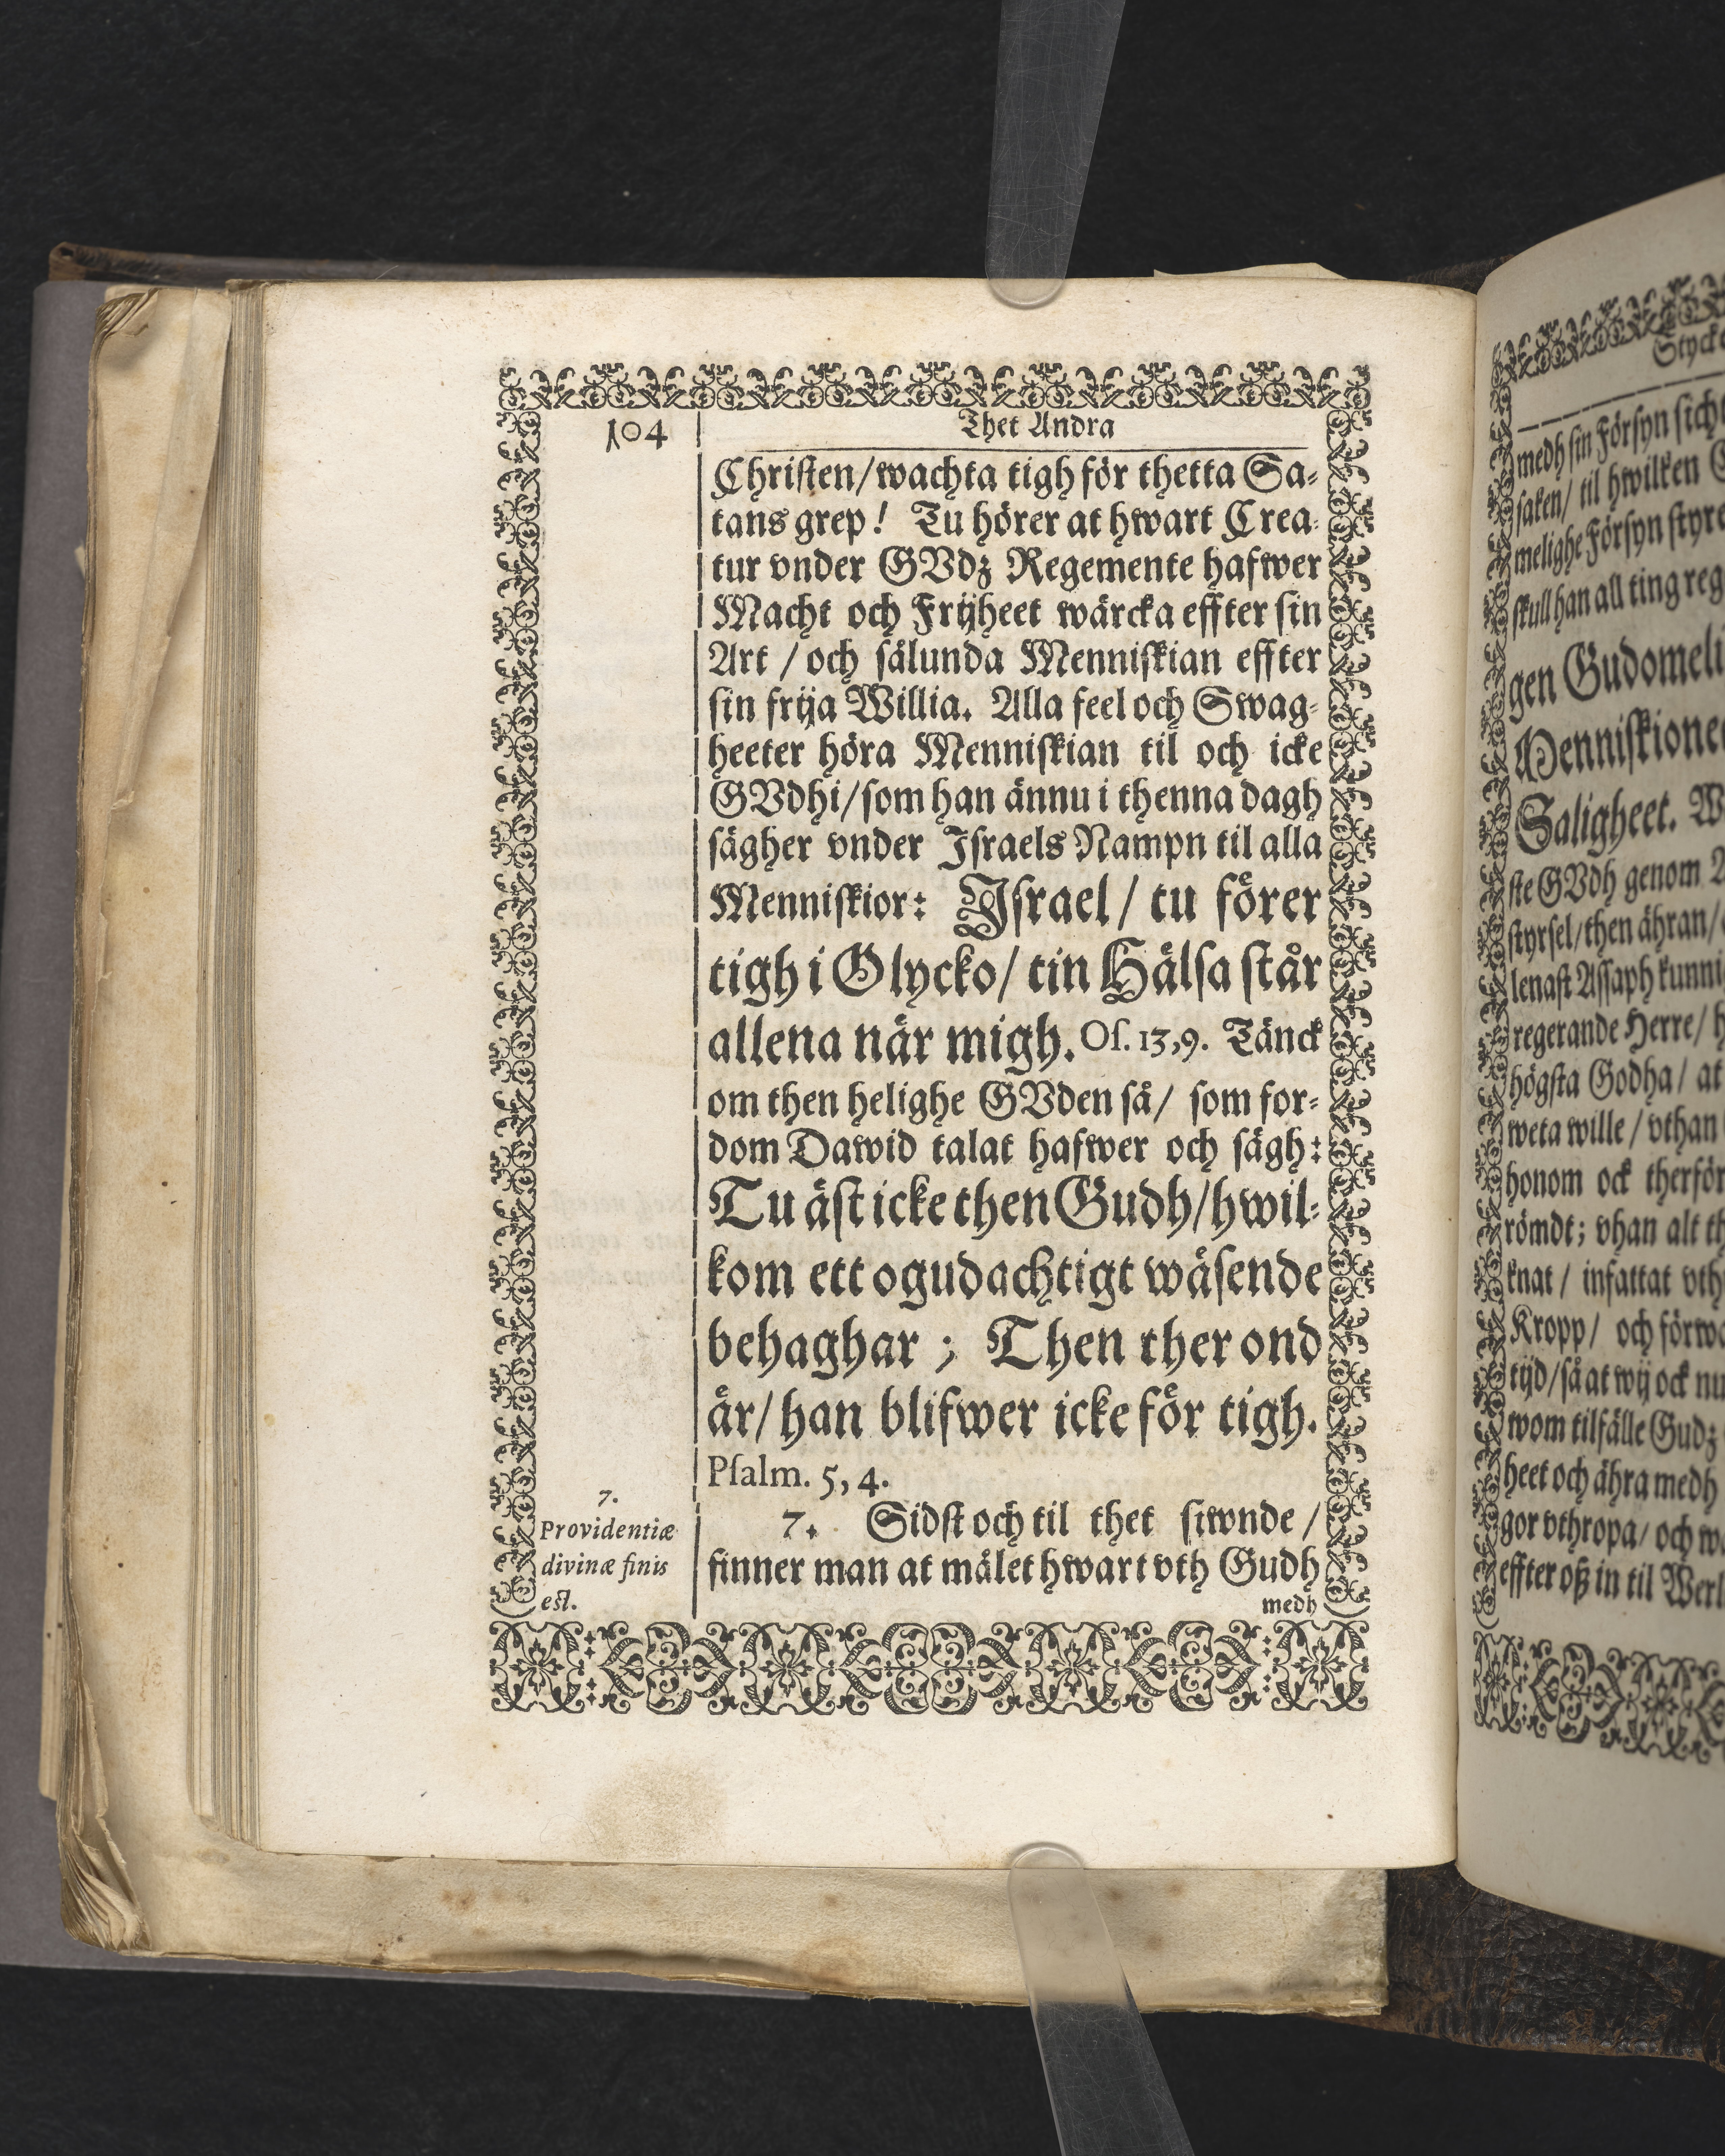 104
Thet Andra
Christen/wachta tigh för thetta Sa-
tans grep! Tu hörer at hwart Crea-
tur vnder GVdz Regemente hafwer
Macht och Frijheet wärcka effter sin
Art / och sålunda Menniskian effter
sin frija Willia. Alla feel och Swag-
heeter höra Menniskian til och icke
GVdhi/som han ännu i thenna dagh
sägher vnder Israels Nampn til alla
Menniskior: Israel / tu förer
tigh i Olycko/ tin Hälsa står
allena när migh. Os. 13,9. Tänck
om then helighe GVden så/ som for-
dom Dawid talat hafwer och sägh:
Tu äst icke then Gudh/hwil-
kom ett ogudachtigt wäsende
behaghar ; Then ther ond
är/ han blifwer icke för tigh.
Psalm. 5, 4.
7. Sidst och til thet siwnde /
finner man at målet hwart vth Gudh
medh
7.
Providentiæ
divinæ finis
est.
medh sin Försyn sicht
saken/ til hwilken
melighe Försyn styre
skull han all ting reg
gen Gudomeli
Menniskione
Saligheet. W
ste GVdh genom
styrsel/then ähran/
lenast Assaph kunni
regerande Herre/ h
högsta Godha/ at
weta wille / vthan
honom ock therför
römdt; vhan alt th
knat / infattat vth
Kropp/ och förwa
tijd/så at wij ock nu
wom tilfälle Gudz
heet och ähra medh
gor vthropa/ och w
effter oß in til Werl